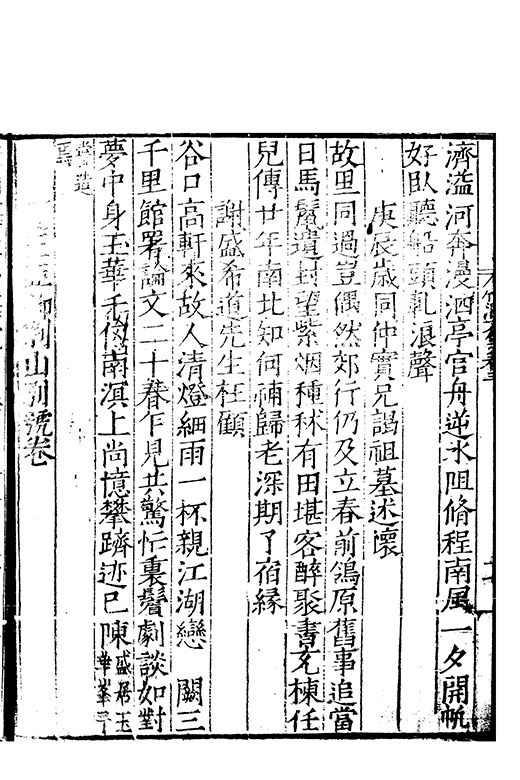 濟溢河奔漫泗亭官舟逆水阻脩程南風一夕開帆
好卧聽船頭軋浪聲
庚辰歲同仲實兄謁祖墓述懷
故里同過豈偶然郊行仍及立春前鴒原舊事追當
日馬鬛遺封望紫烟種秫有田堪客醉聚書充棟任
兒傳廿年南北知何補歸老深期了宿緣
謝盛希道先生枉顧
谷口高軒來故人清燈細雨一杯親江湖戀闕三
千里館署論文二十春乍見共驚忙裏鬢劇談如對
夢中身玉華千俊南溟上尚憶攀躋迹已陳盛居玉
華峯
嘗造
焉
山別號卷